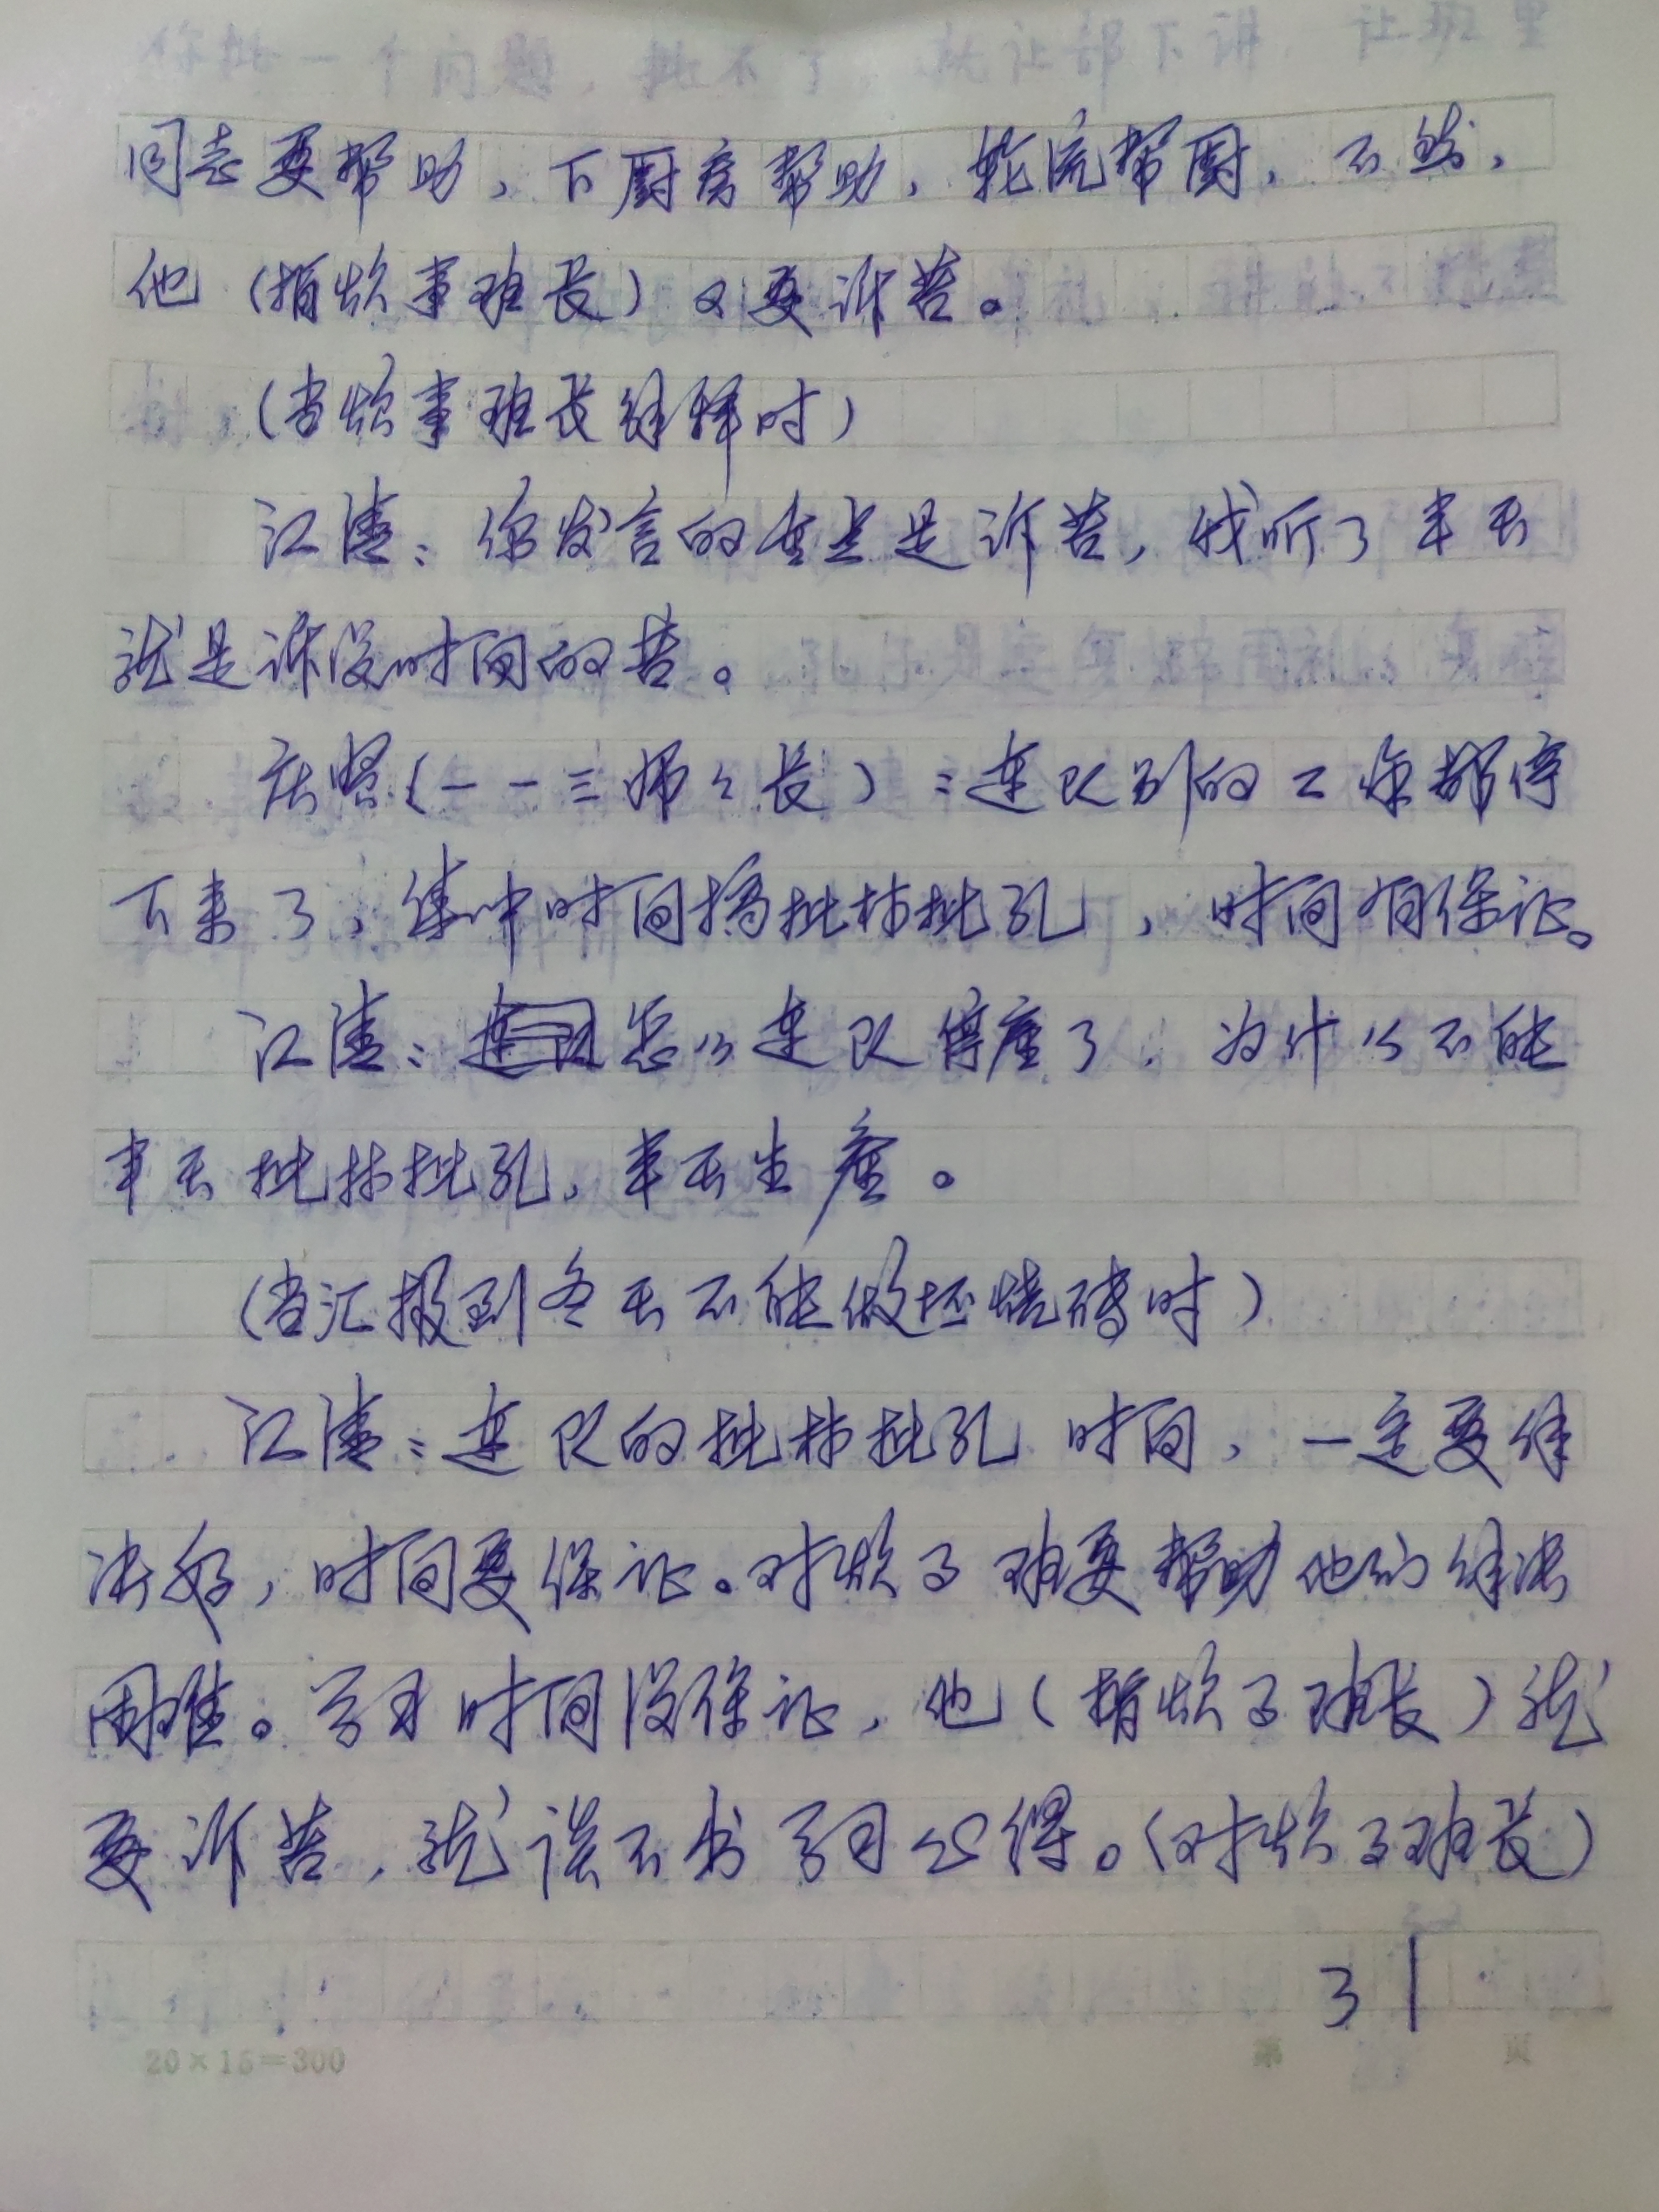 同志要帮助,下厨房帮助,轮流帮厨,不然,
他(指炊事班长)又要诉苦。
(当炊事班长解释时)
江青:你发言的重点是诉苦,我听了半天
就是诉没时间的苦。
(一一三师々长):连队别的工作都停
下来了,集中时间搞批林批孔,时间有保证。
江青:怎么连队停产了,为什么不能
半天批林批孔,半天生产。
(当汇报到冬天不能做坯烧砖时)
江青:连队的批林批孔时间,一定要解
决好,时间要保证。对炊事班要帮助他们解决
困难。学习时间没保证,他(指炊事班长)就
要诉苦,就谈不出学习心得。(对炊事班长)
31
20×15=300
第 页